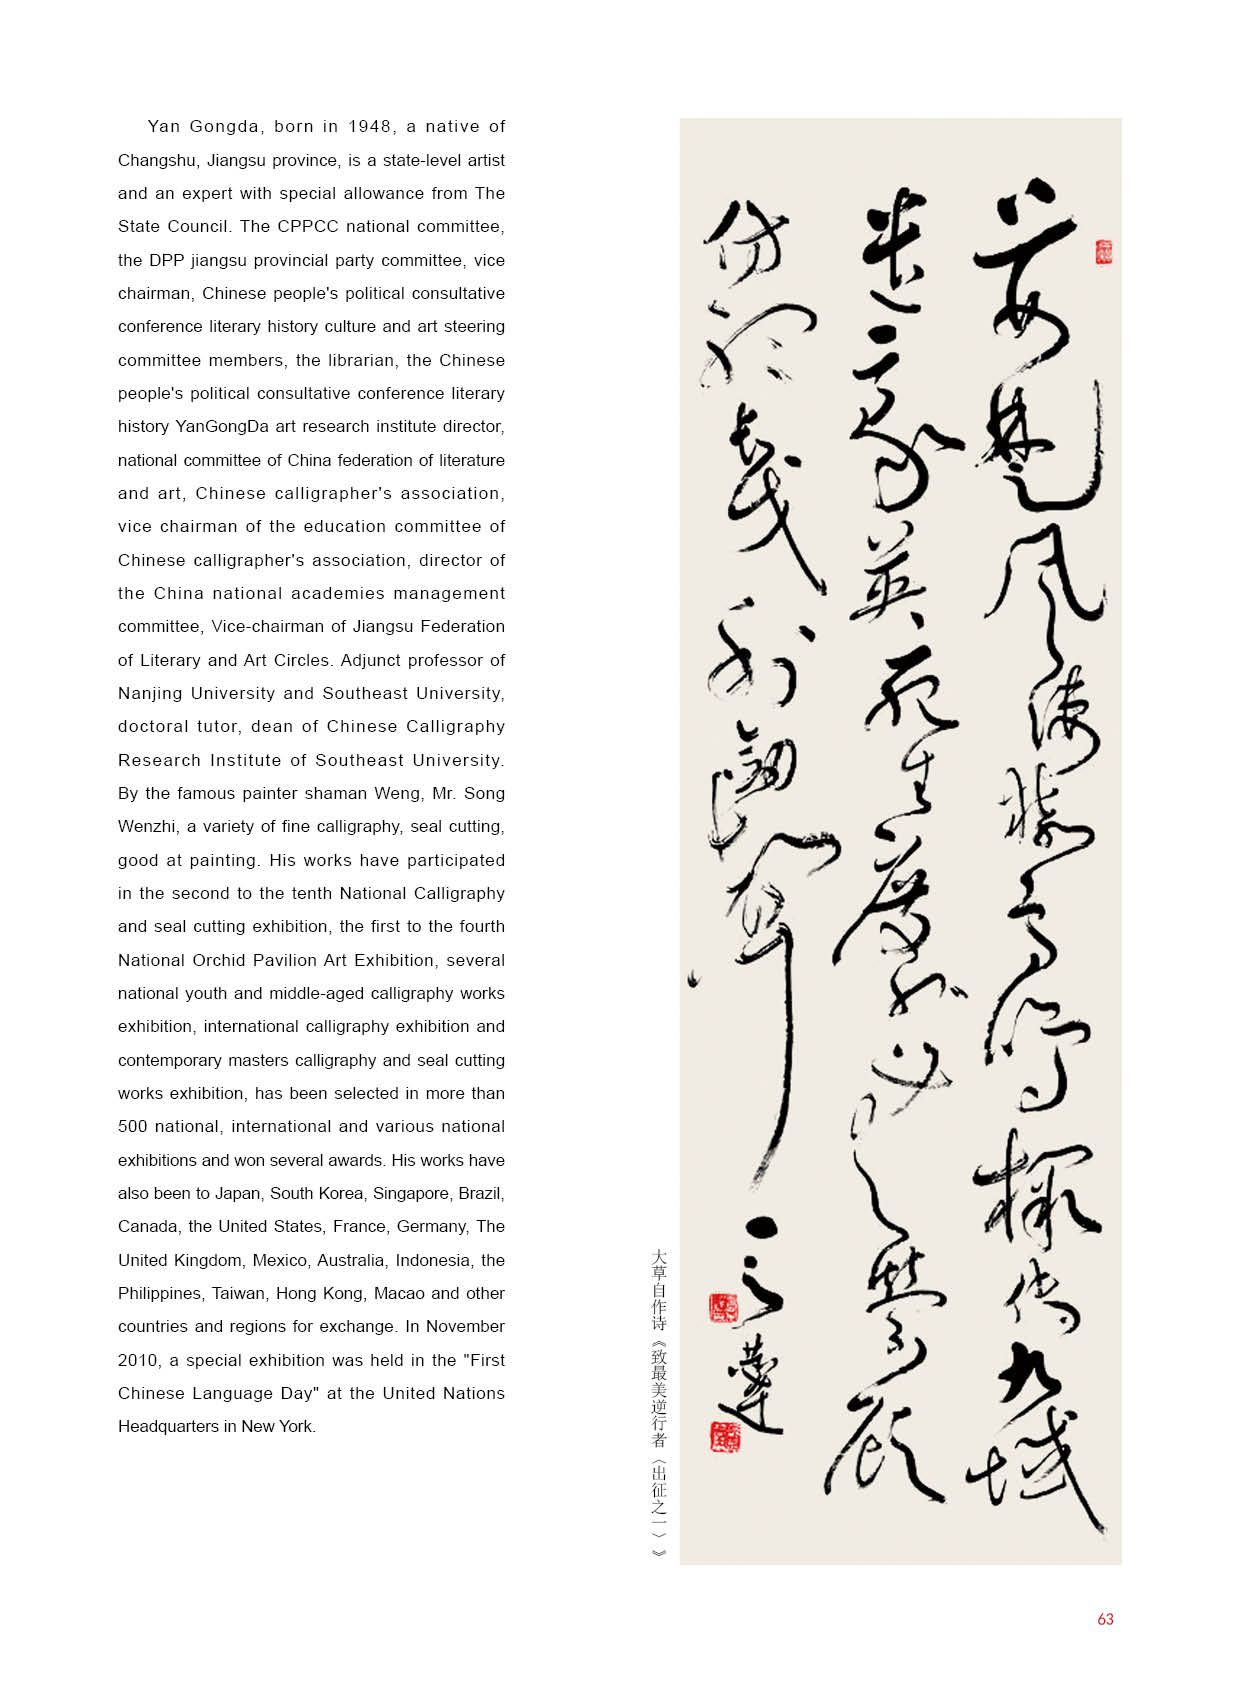 Yan Gongda, born in 1948, a native of
Changshu, Jiangsu province, is a state-level artist
and an expert with special allowance from The
State Council. The CPPCC national committee,
the DPP jiangsu provincial party committee, vice
chairman, Chinese people's political consultative
conference literary history culture and art steering
committee members, the librarian, the Chinese
people's political consultative conference literary
history YanGongDa art research institute director,
national committee of China federation of literature
and art, Chinese calligrapher's association,
vice chairman of the education committee of
Chinese calligrapher's association, director of
the China national academies management
committee, Vice-chairman of Jiangsu Federation
of Literary and Art Circles. Adjunct professor of
Nanjing University and Southeast University,
doctoral tutor, dean of Chinese Calligraphy
Research Institute of Southeast University.
By the famous painter shaman Weng, Mr. Song
Wenzhi, a variety of fine calligraphy, seal cutting,
good at painting. His works have participated
in the second to the tenth National Calligraphy
and seal cutting exhibition, the first to the fourth
National Orchid Pavilion Art Exhibition, several
national youth and middle-aged calligraphy works
exhibition, international calligraphy exhibition and
contemporary masters calligraphy and seal cutting
works exhibition, has been selected in more than
500 national, international and various national
exhibitions and won several awards. His works have
also been to Japan, South Korea, Singapore, Brazil,
Canada, the United States, France, Germany, The
United Kingdom, Mexico, Australia, Indonesia, the
Philippines, Taiwan, Hong Kong, Macao and other
countries and regions for exchange. In November
2010, a special exhibition was held in the "First
Chinese Language Day" at the United Nations
Headquarters in New York.
大草自作诗《致最美逆行者〈出征之一〉》
63